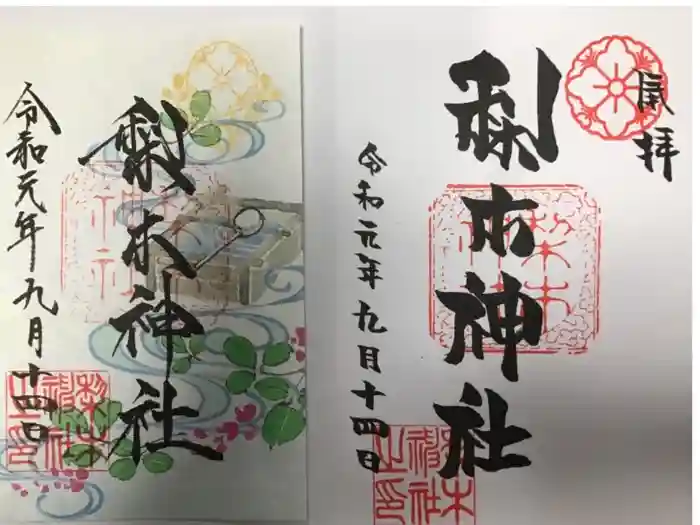 奉拝
梨木神社
令和元年九月十四日
梨木神社
令和元年九月十四日
梨木神社之印
梨木神社之印